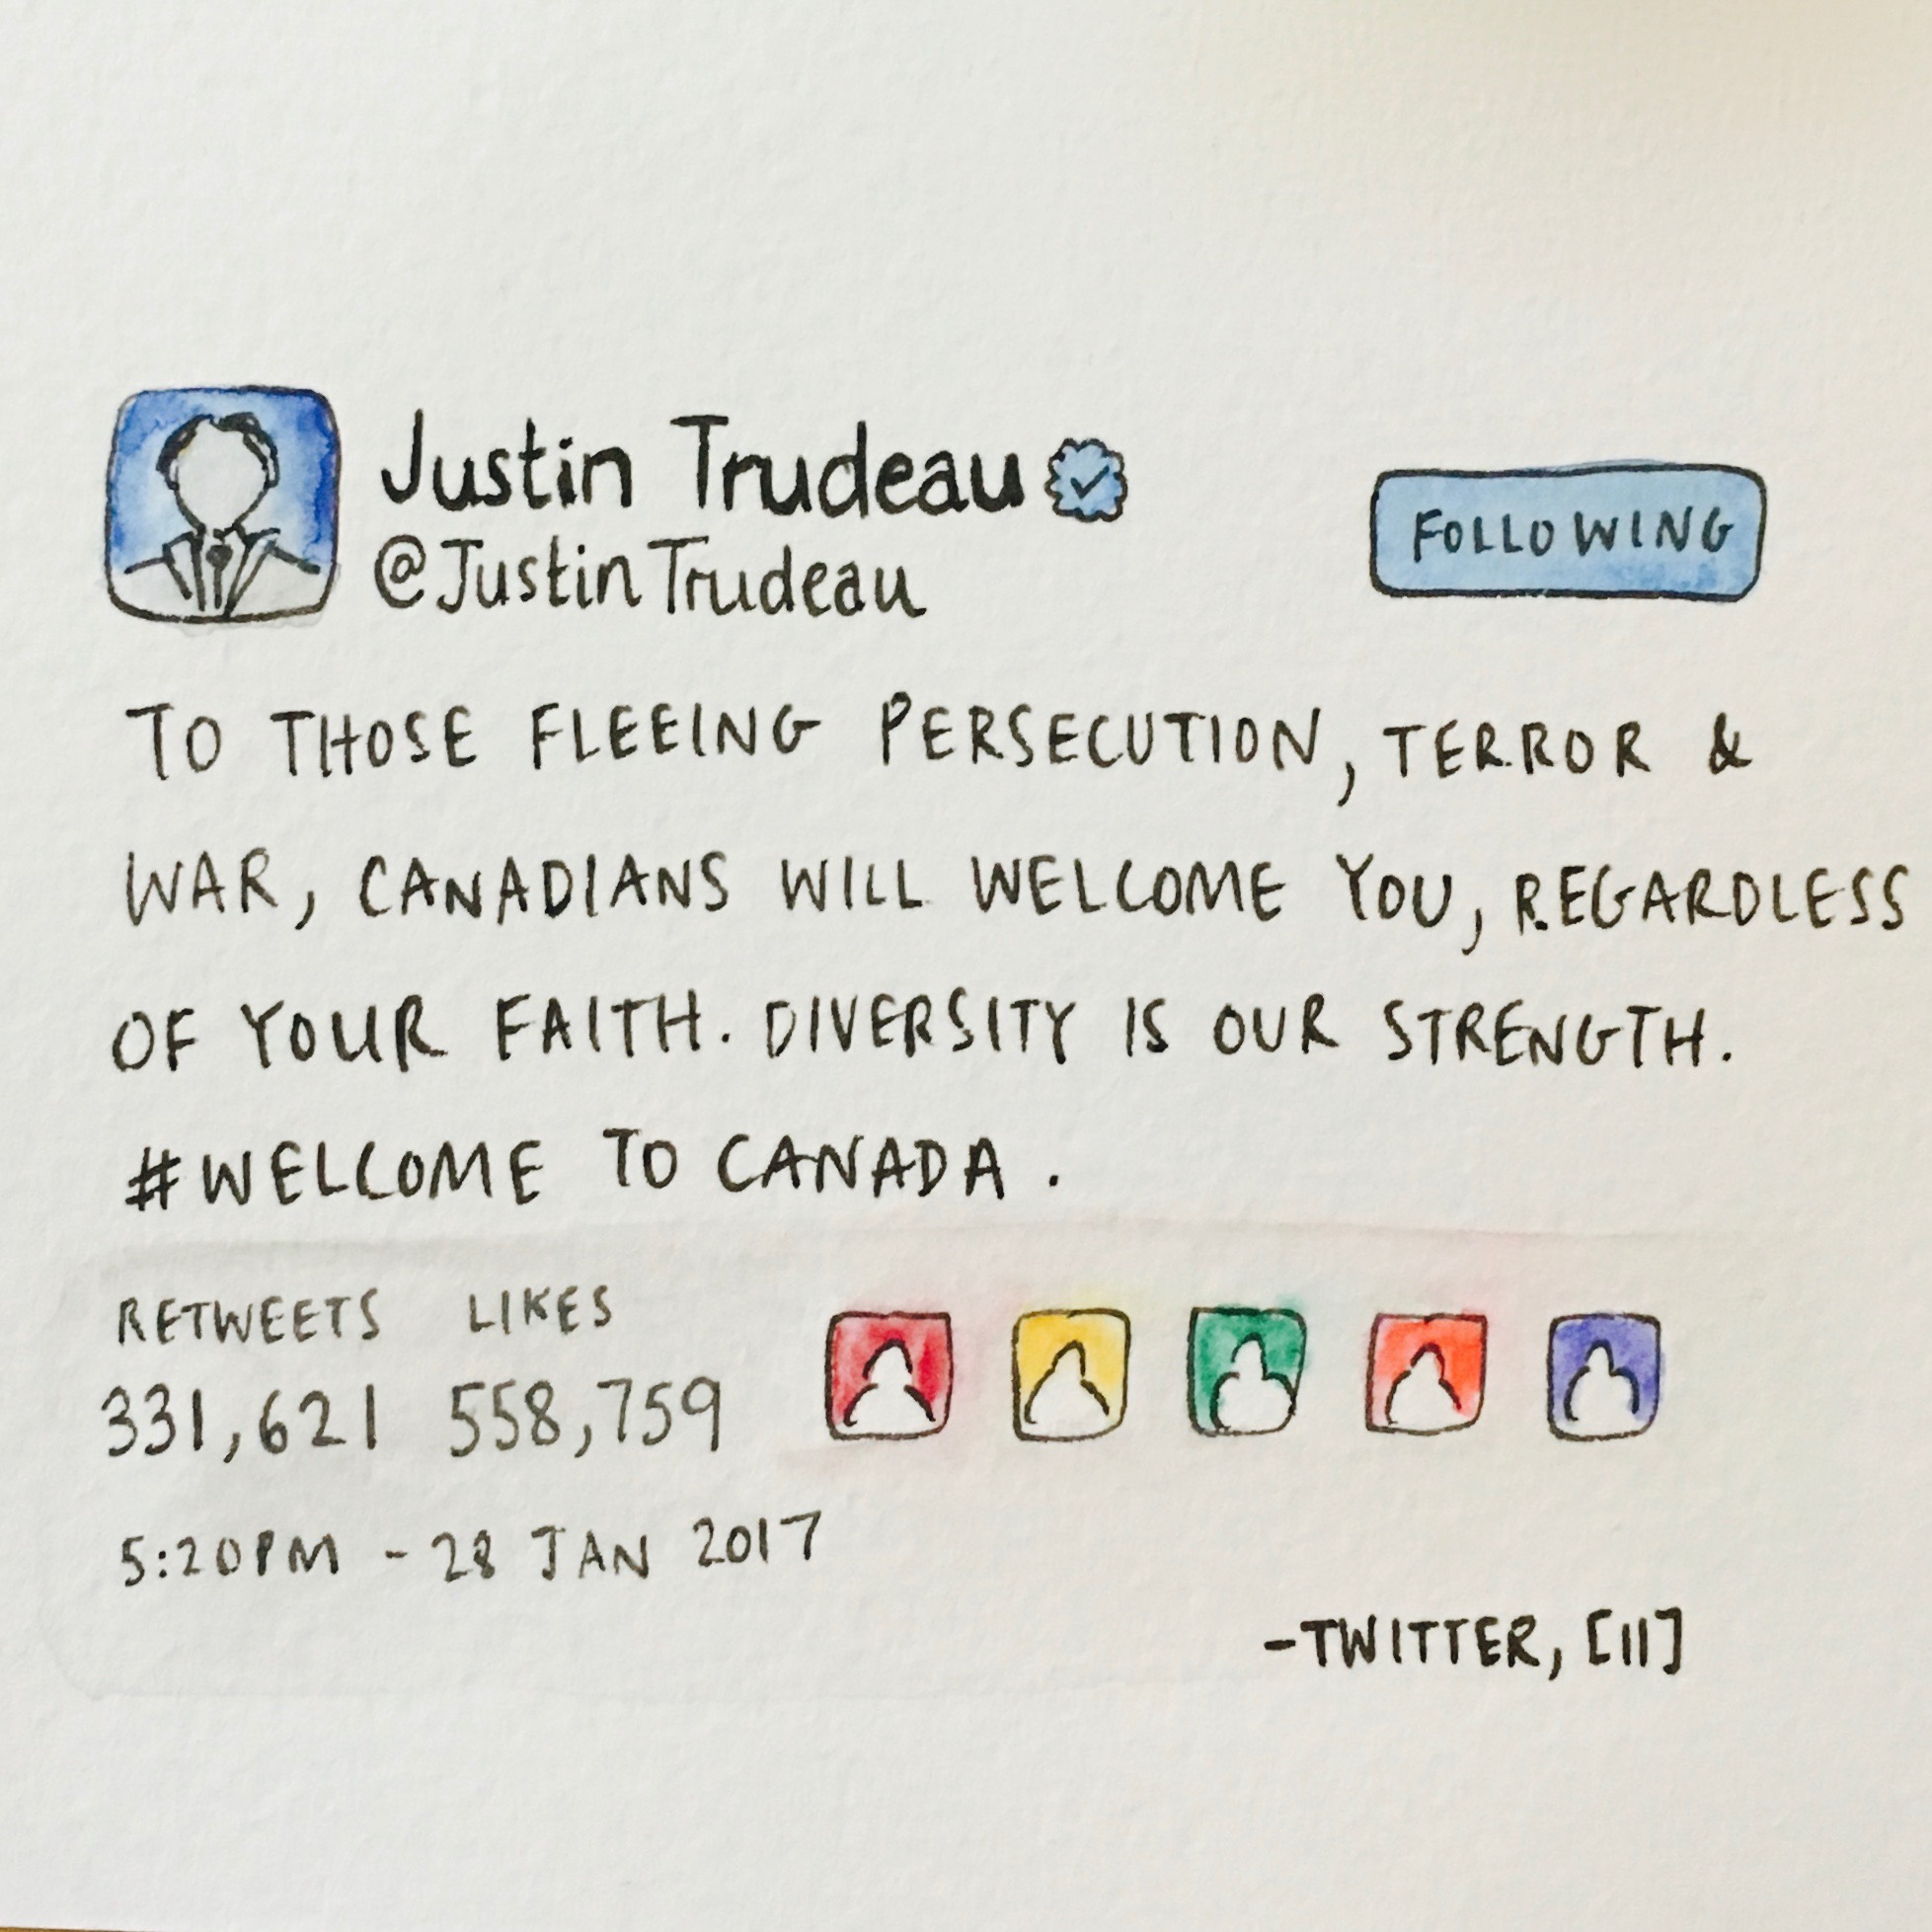 Justin Trudeau
FOLLOWING
@JustinTrudeau
TO THOSE FLEEING PERSECUTION, TERROR &
WAR, CANADIANS WILL WELCOME YOU, REGARDLESS
OF YOUR FAITH. DIVERSITY IS OUR STRENGTH.
#WELCOME TO CANADA.
RETWEETS LIKES
331,621 558,759
5:20PM - 28 JAN 2017
-TWITTER, [11]